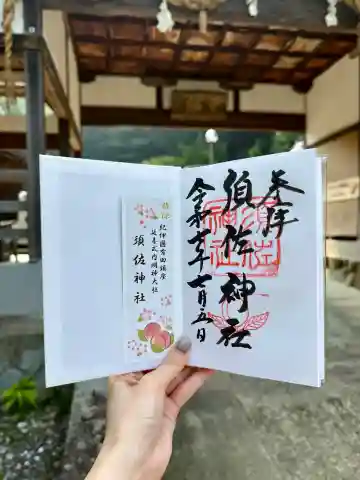 参拝
須佐神社
須佐神社
令和
年七月五日
紀伊國有田鎮座
延喜式内明神大社
須佐神社